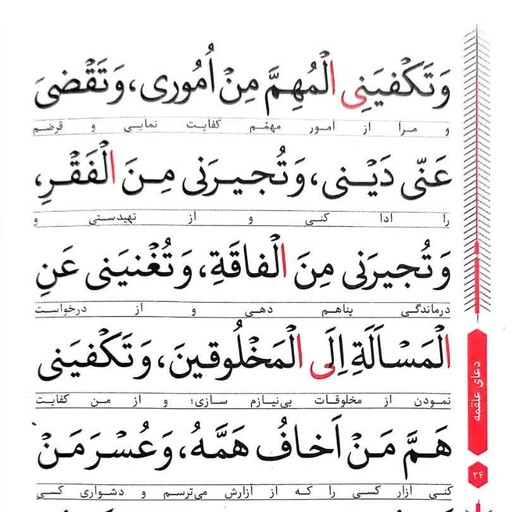 وَتَكْفِيَنِى الْمُهِمَّ مِنْ اُمُورى، وَتَقْضِىَ
و مرا از امور مهمّم کفایت نمایی و قرضم
عَنّى دَيْنى، وَتُجيرَنى مِنَ الْفَقْرِ،
را ادا کنی و از تهیدستی و
وَتُجيرَنى مِنَ الْفاقَةِ، وَتُغْنيَنى عَنِ
درماندگی پناهم دهی و از درخواست
الْمَسأَلَةِ اِلَى الْمَخْلُوقينَ، وَتَكْفيَنى
نمودن از مخلوقات بی‌نیازم سازی؛ و از من کفایت
هَمَّ مَنْ اَخافُ هَمَّهُ، وَعُسْرَ مَنْ
کنی آزار کسی را که از آزارش می‌ترسم و دشواری کسی
دعای علقمه
۲۴